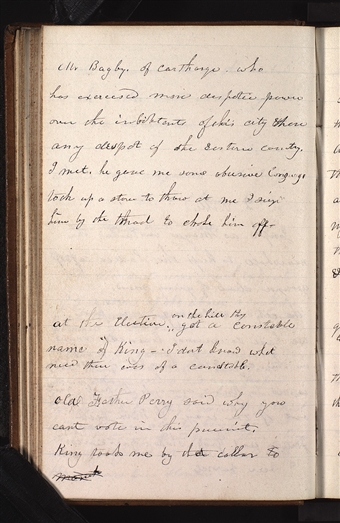 Mr Bagby. of carthage. who
has exercised more despotic power
over the inhbitents of this city then
any despot of the Eestern country.
I met. he gave me some abusive Languge
took up a stone to throw at me I siezd
him by the throat to choke him off-
on the hill thy
at the Election,, got a constable
name of King- I dont know what
need there was of a constable.
old Father Perry said why you
cant vote in this precinct.
King took me by the collar to